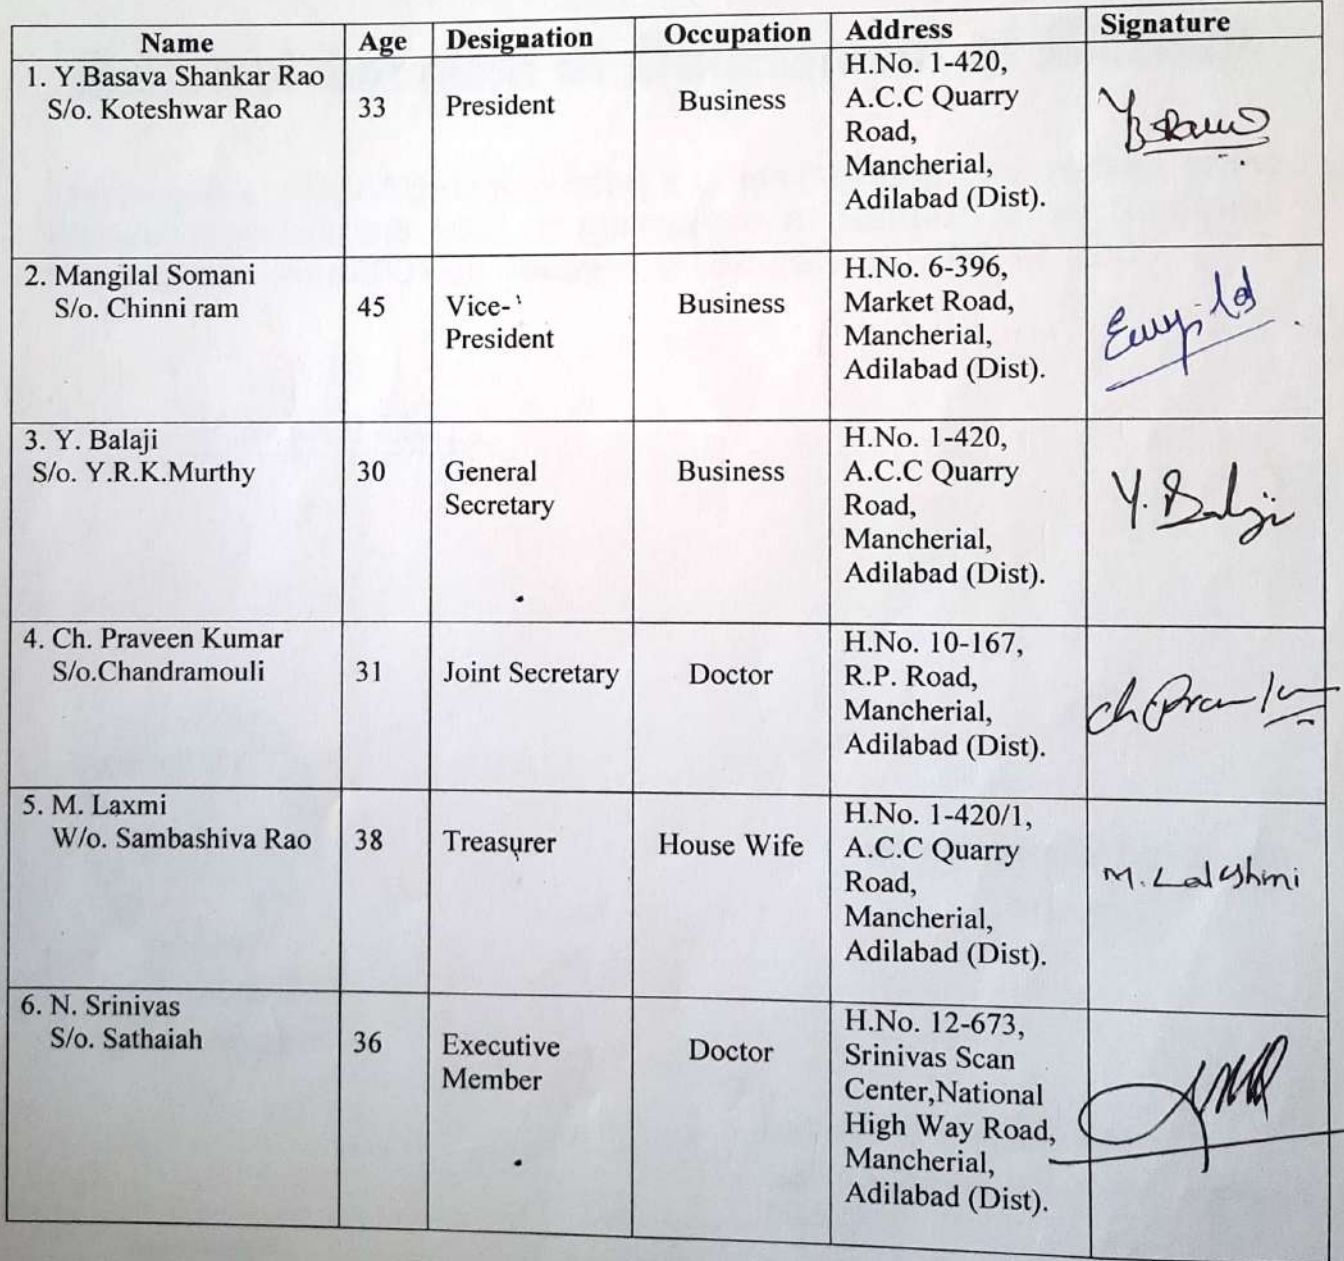 Name Age Designation Occupation Address Signature
1. Y.Basava Shankar Rao
S/o. Koteshwar Rao
33
President
Business
H.No. 1-420,
A.C.C Quarry
Road,
Mancherial,
Adilabad (Dist).
2. Mangilal Somani
S/o. Chinni ram
45
Vice-
President
Business
H.No. 6-396,
Market Road,
Mancherial,
Adilabad (Dist).
3. Y. Balaji
S/o. Y.R.K.Murthy
30
General
Secretary
Business
H.No. 1-420,
A.C.C Quarry
Road,
Mancherial,
Adilabad (Dist).
Y. Balaji
4. Ch. Praveen Kumar
S/o.Chandramouli
31
Joint Secretary
Doctor
H.No. 10-167,
R.P. Road,
Mancherial,
Adilabad (Dist).
5. M. Laxmi
W/o. Sambashiva Rao
38
Treasurer
House Wife
H.No. 1-420/1,
A.C.C Quarry
Road,
Mancherial,
Adilabad (Dist).
M. Lakshmi
6. N. Srinivas
S/o. Sathaiah
36
Executive
Member
Doctor
H.No. 12-673,
Srinivas Scan
Center,National
High Way Road,
Mancherial,
Adilabad (Dist).